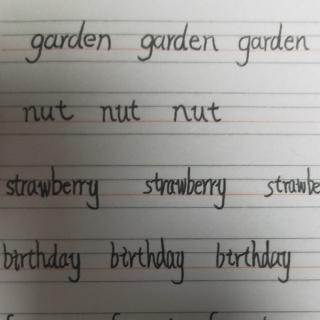 garden garden garden
nut nut nut
strawberry strawberry strawbe
birthday birthday birthday